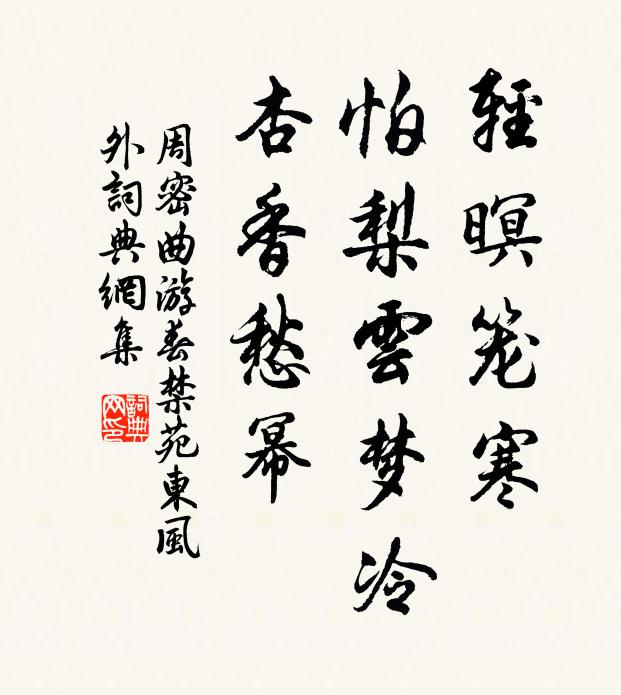 輕暝笼寒
怕梨雲梦冷
杏香愁幂
周密曲游春禁苑東風
外詞典網集
詞典网印